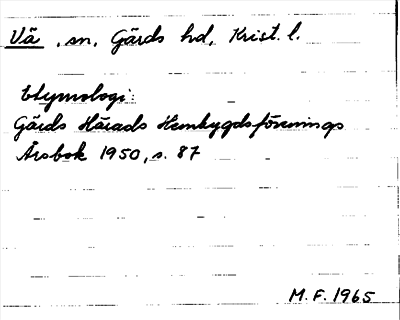 Vä, sn, Gärds hd, Krist. l.
Etymologi:
Gärds Härads Hembygdsförenings
Årsbok 1950, s. 87
M.F. 1965